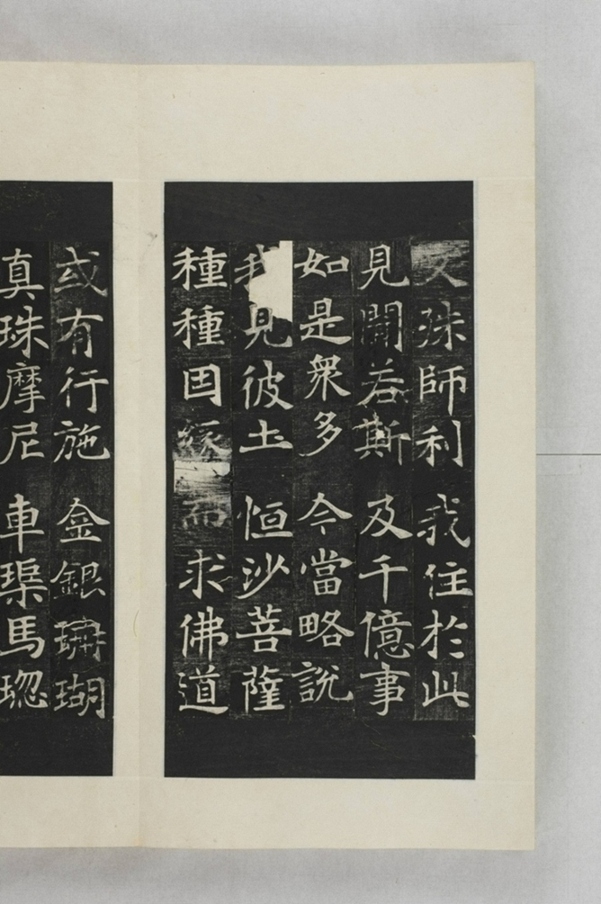 文殊師利 我住於此
見聞若斯 及千億事
如是衆多 今當略說
我見彼土 恒沙菩薩
種種因緣 而求佛道
或有行施 金銀珊瑚
真珠摩尼 車璖馬瑙